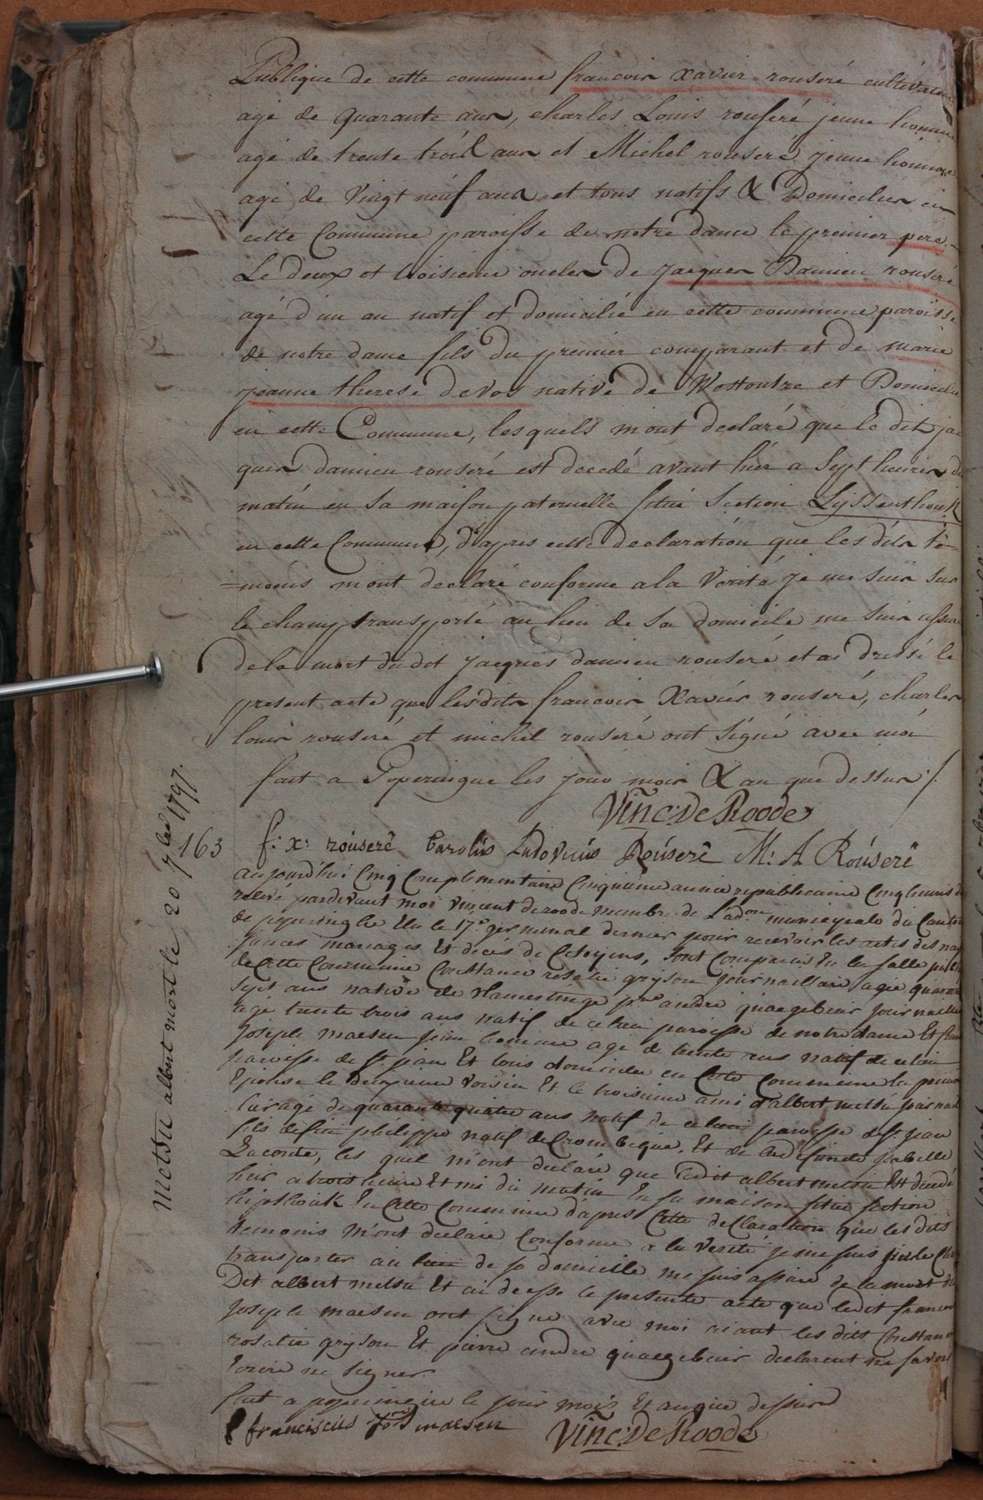 Publique de cette commune francois xavier rouseré cultivateur
agé de quarante ans, charles Louis rouseré jeune homme
agé de trente trois ans et Michel rouseré jeune homme
agé de vingt neuf ans et tous natifs & Domiciliés en
cette Commune paroisse de notre dame le premier pere
Le deux et troisieme oncles de jacques Damien rouseré
agé d'un an natif et domicilié en cette commune paroisse
de notre dame fils du premier comparant et de marie
jeanne therese devos native de Wostoutre et Domiciliée
en cette Commune, lesquels m'ont declaré que le dit jac
ques damien rouseré est decedé avant hier a sept heures du
matin en sa maison paternelle situé Section Lyssenthouk
en cette Commune, d'apres cette declaration que les dits té=
=moins m'ont declaré conforme a la Verité je me suis sur
le champ transporté au lieu de sa domicile me suis assuré
de la mort du dit jacques damien rouseré et ai dressé le
present acte que lesdits francois Xavier rouseré, charles
louis rouseré et michel rouseré ont signé avec moi
fait a Poperingue les jour mois & an que dessus /.
Vinc: De Roode
f: x: rouseré Carolus Ludovicus Rouseré M: A Rouseré
Metsu albert mort le 20 7bre 1797.
163
aujourd'hui Cinq Complementaire Cinquieme année republicaine Cinq heures de
relevé pardevant moi vincent deroode membre de L'adon municipale du Canton
de poperinghe Elu le 17e germinal dernier pour recevoir les actes des nais
sances mariages Et décés des Citoyens, sont Comparus En la salle publique
de Cette Commune Constance rosalie gryson journailliere agée quarante
sept ans native de vlamertinge pre andre quaegebeur journaillier
agé trente trois ans natif de ce lieu paroisse de notre dame Et francois
Joseph maesen jeune homme agé de trente ans natif de ce lieu
paroisse de St jean Et tous domiciliés en Cette Commune la premiere
Epouse le deuxieme voisin Et le troisieme ami d'albert metsu journail
lier agé de quarante quatre ans natif de ce lieu paroisse de St jean
fils de feu philippe natif de Crombeque, Et de isabelle
Laconte, les quel m'ont declaré que ledit albert metsu Est decedé
hier a trois heure Et mi du matin En sa maison situe section
En Cette Commune d'apres Cette declaration que les dits
temoins m'ont declaré Conforme a la verité je me suis sur le champ
transporter au lieu de sa domicille me suis assuré de la mort du
Dit albert metsu Et ai dressé le presente acte que ledit francois
Joseph maesen ont signé avec moi aiant les dits Constance
rosalie gryson Et pierre andre quaegebeur declarent ne savoir
Ecrire ni signer
fait a poperingue le jour mois Et an que dessus
franciscus Josp maesen Vinc: De Roode